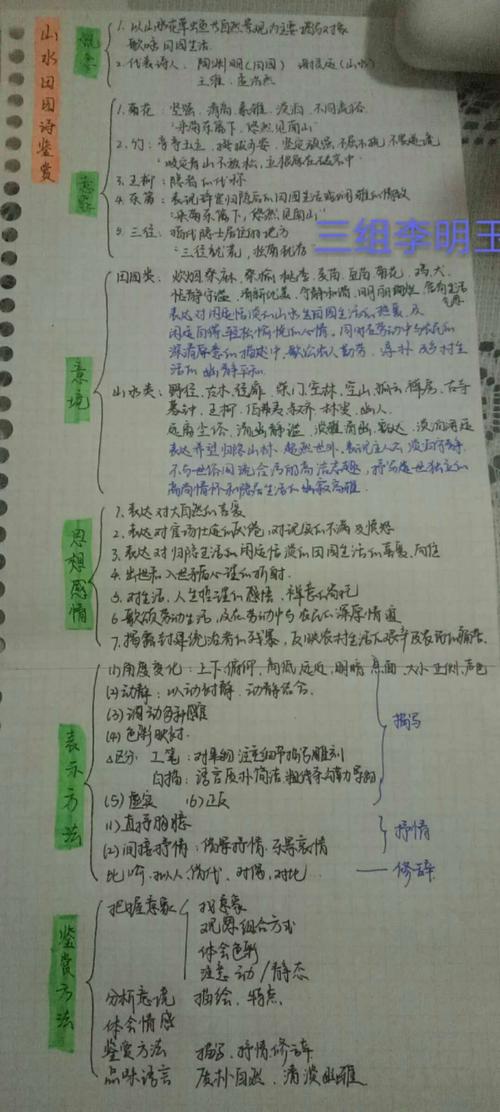 山水田园诗鉴赏
概念
1. 以山水花草虫鱼等自然景观为主要描写对象
歌咏田园生活
2. 代表诗人 陶渊明(田园) 谢灵运(山水)
王维 孟浩然
意象
1. 菊花: 坚强 清高 不同流俗
"采菊东篱下, 悠然见南山"
2. 竹: 亭亭玉立 坚定顽强 不屈不挠
"咬定青山不放松, 立根原在破岩中"
3. 五柳: 隐者的代称
4. 东篱: 表现辞官归隐后的田园生活或闲雅的情致
"采菊东篱下, 悠然见南山"
5. 三径: 指代隐士居住的地方
"三径就荒, 松菊犹存"
三组李明玉
意境
田园类: 炊烟 桑麻 桑榆 桃李 麦苗 豆苗 菊花 鸡犬
恬静守谧 清新优美 宁静和谐
表达对闲适恬淡的山水生田园生活的热爱及
闲适自得, 轻松愉悦的心情, 同时在劳动中与农民的
深情厚意的描述中, 歌讼农人勤劳
活的幽静平和
山水类: 野径 古木 柴门 空林 空山 孤云 禅房 古寺
暮钟 五柳 幽人
远离尘俗 清幽静谧
表达希望归隐山林, 超然世外
不与世俗同流合污的高洁志趣, 抒写遗世独立的
高尚情怀和隐居生活的幽寂高雅
思想感情
1. 表达对大自然的喜爱
2. 表达对官场仕途的厌倦, 对现实的不满及愤怒
3. 表达对归隐生活和闲适恬淡的田园生活的喜爱、向往
4. 出世和入世矛盾心理的折射
5. 对生活, 人生哲理的感悟, 禅意的寄托
6. 歌颂劳动生活, 及在劳动中与农民的深厚情谊
7. 揭露封建统治者的残暴, 反映农村生活的艰辛及农民的痛苦
表示方法
(1) 角度变化: 上下俯仰, 高低远近, 明暗 大小 正侧, 声色
(2) 动静: 以动衬静 动静结合
(3) 调动多种感官
(4) 色彩映衬
△区分 工笔: 对景物注重细节描写雕刻
白描: 语言质朴简洁 粗线条勾勒景物
(5) 虚实 (6) 正反
描写
(1) 直抒胸臆
(2) 间接抒情: 借景抒情 乐景哀情
抒情
比喻 拟人 借代 对偶, 对比...
—— 修辞
鉴赏方法
把握意象
找意象
观察组合方式
体会色彩
注意动/静态
分析意境 描绘, 特点
体会情感
鉴赏方法 描写, 抒情, 修辞
品味语言 质朴自然, 清淡幽雅